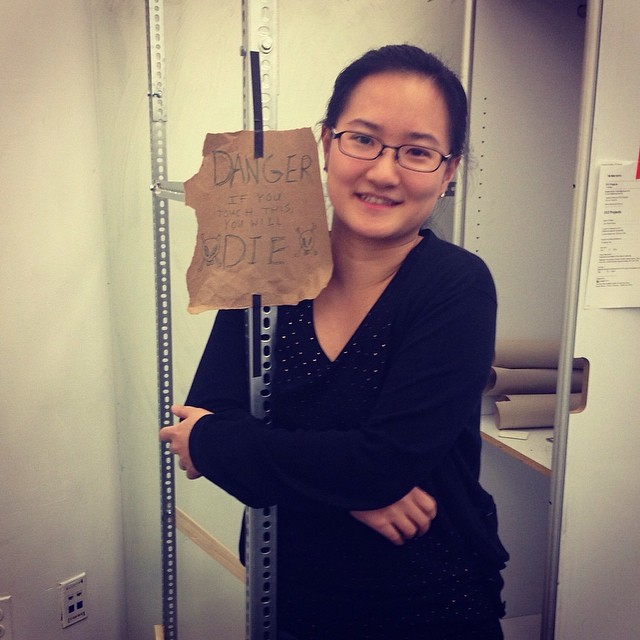 DANGER
IF YOU
TOUCH THIS,
YOU WILL
DIE